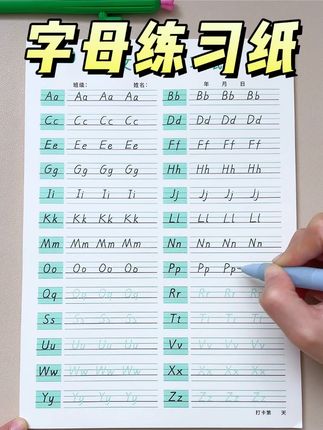 字母练习纸
文
班级: 姓名: 年 月 日
Aa Aa Aa Aa Bb Bb Bb Bb
Cc Cc Cc Cc Dd Dd Dd Dd
Ee Ee Ee Ee Ff Ff Ff Ff
Gg Gg Gg Gg Hh Hh Hh Hh
Ii Ii Ii Ii Jj Jj Jj Jj
Kk Kk Kk Kk Ll Ll Ll Ll
Mm Mm Mm Mm Nn Nn Nn Nn
Oo Oo Oo Oo Pp Pp Pp Pp
Qq Qq Qq Qq Rr Rr Rr Rr
Ss Ss Ss Ss Tt Tt Tt Tt
Uu Uu Uu Uu Vv Vv Vv Vv
Ww Ww Ww Ww Xx Xx Xx Xx
Yy Yy Yy Yy Zz Zz Zz Zz
打卡第 天